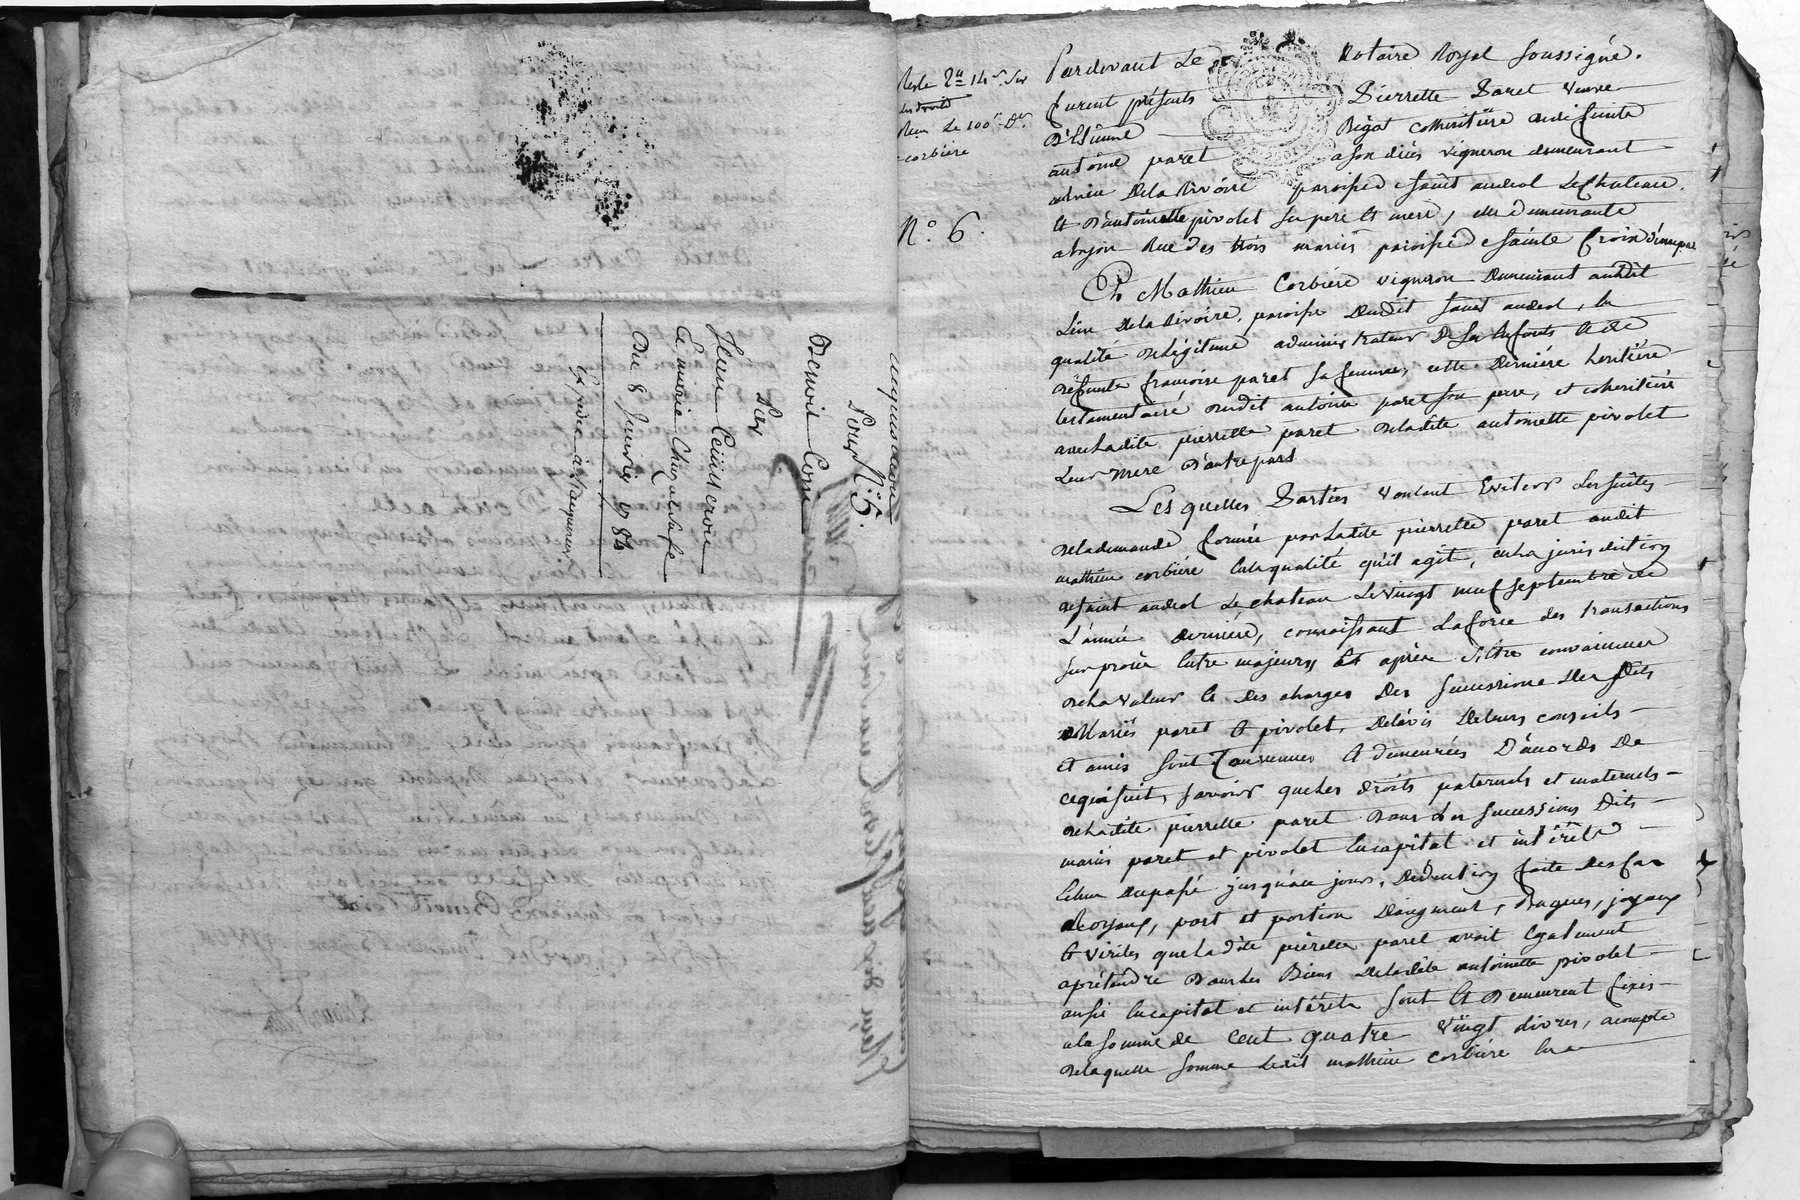 quittance
Pour N.° 5.
Benoit Coin
Par
Jean Ceiiscroix
Et marie Chazal safe
Du 8 Janvier 1784
Expédié au Raquereur
Reste 2# 14s. Sur
les droits
Reçu le 100e Der.
corbiere
N.° 6.
Pardevant Le Notaire Royal soussigné.
furent présents Pierrette Paret veuve
D'Etienne Rigot cohéritière de défunts
antoine paret a son décès vigneron demeurant
au lieu De la Rivóire paroisse saint andeol Le Chateau.
Et D'antoinette pivolet Ses pere Et mere, elle demeurante
a Lyon Rue des trois maries paroisse sainte Croix d'une part
Et Mathieu Corbiére vigneron Demeurant audit
Lieu De la Rivóire, paroisse Dudit saint andeol, En
qualité De légitime administrateur De ses Enfants Et de
Défunte françoise paret sa femme, cette Derniére heritiére
testamentaire dudit antoine paret son pere, et coheritiére
avec ladite pierrette paret De ladite antoinette pivolet
Leur mere D'autre part
Les quelles Parties voulant Eviter Les suites
De la demande formée par La dite pierrette paret audit
mathieu corbiére En la qualité qu'il agit, En La jurisdiction
De saint andeol Le chateau Le vingt neuf septembre de
L'année derniére, connaissant La force des transactions
sur procès Entre majeurs Et après s'Etre convaincues
De la valeur Et Des charges Des successions Des Dits
Mariés paret Et pivolet, De l'avis De leurs conseils
Et amis sont Convenues Et demeurées D'accords De
ce qui suit, savoir que les droits paternels et maternels
De ladite pierrette paret Dans Les successions Dits
mariés paret et pivolet En capital et intérêts
Echus Du passé jusqu'a ce jour, Déduction faite Des
Royaux, part et portion D'augment, Bagues, joyaux
Et viriles que La dite pierrette paret avoit Egalement
a prétendre Dans Les Biens De La dite antoinette pivolet
aussi En capital et intérêts sont Et Demeurent fixés
a la somme de Cent quatre vingt Livres, a compte
De laquelle somme Ledit mathieu corbiére En a